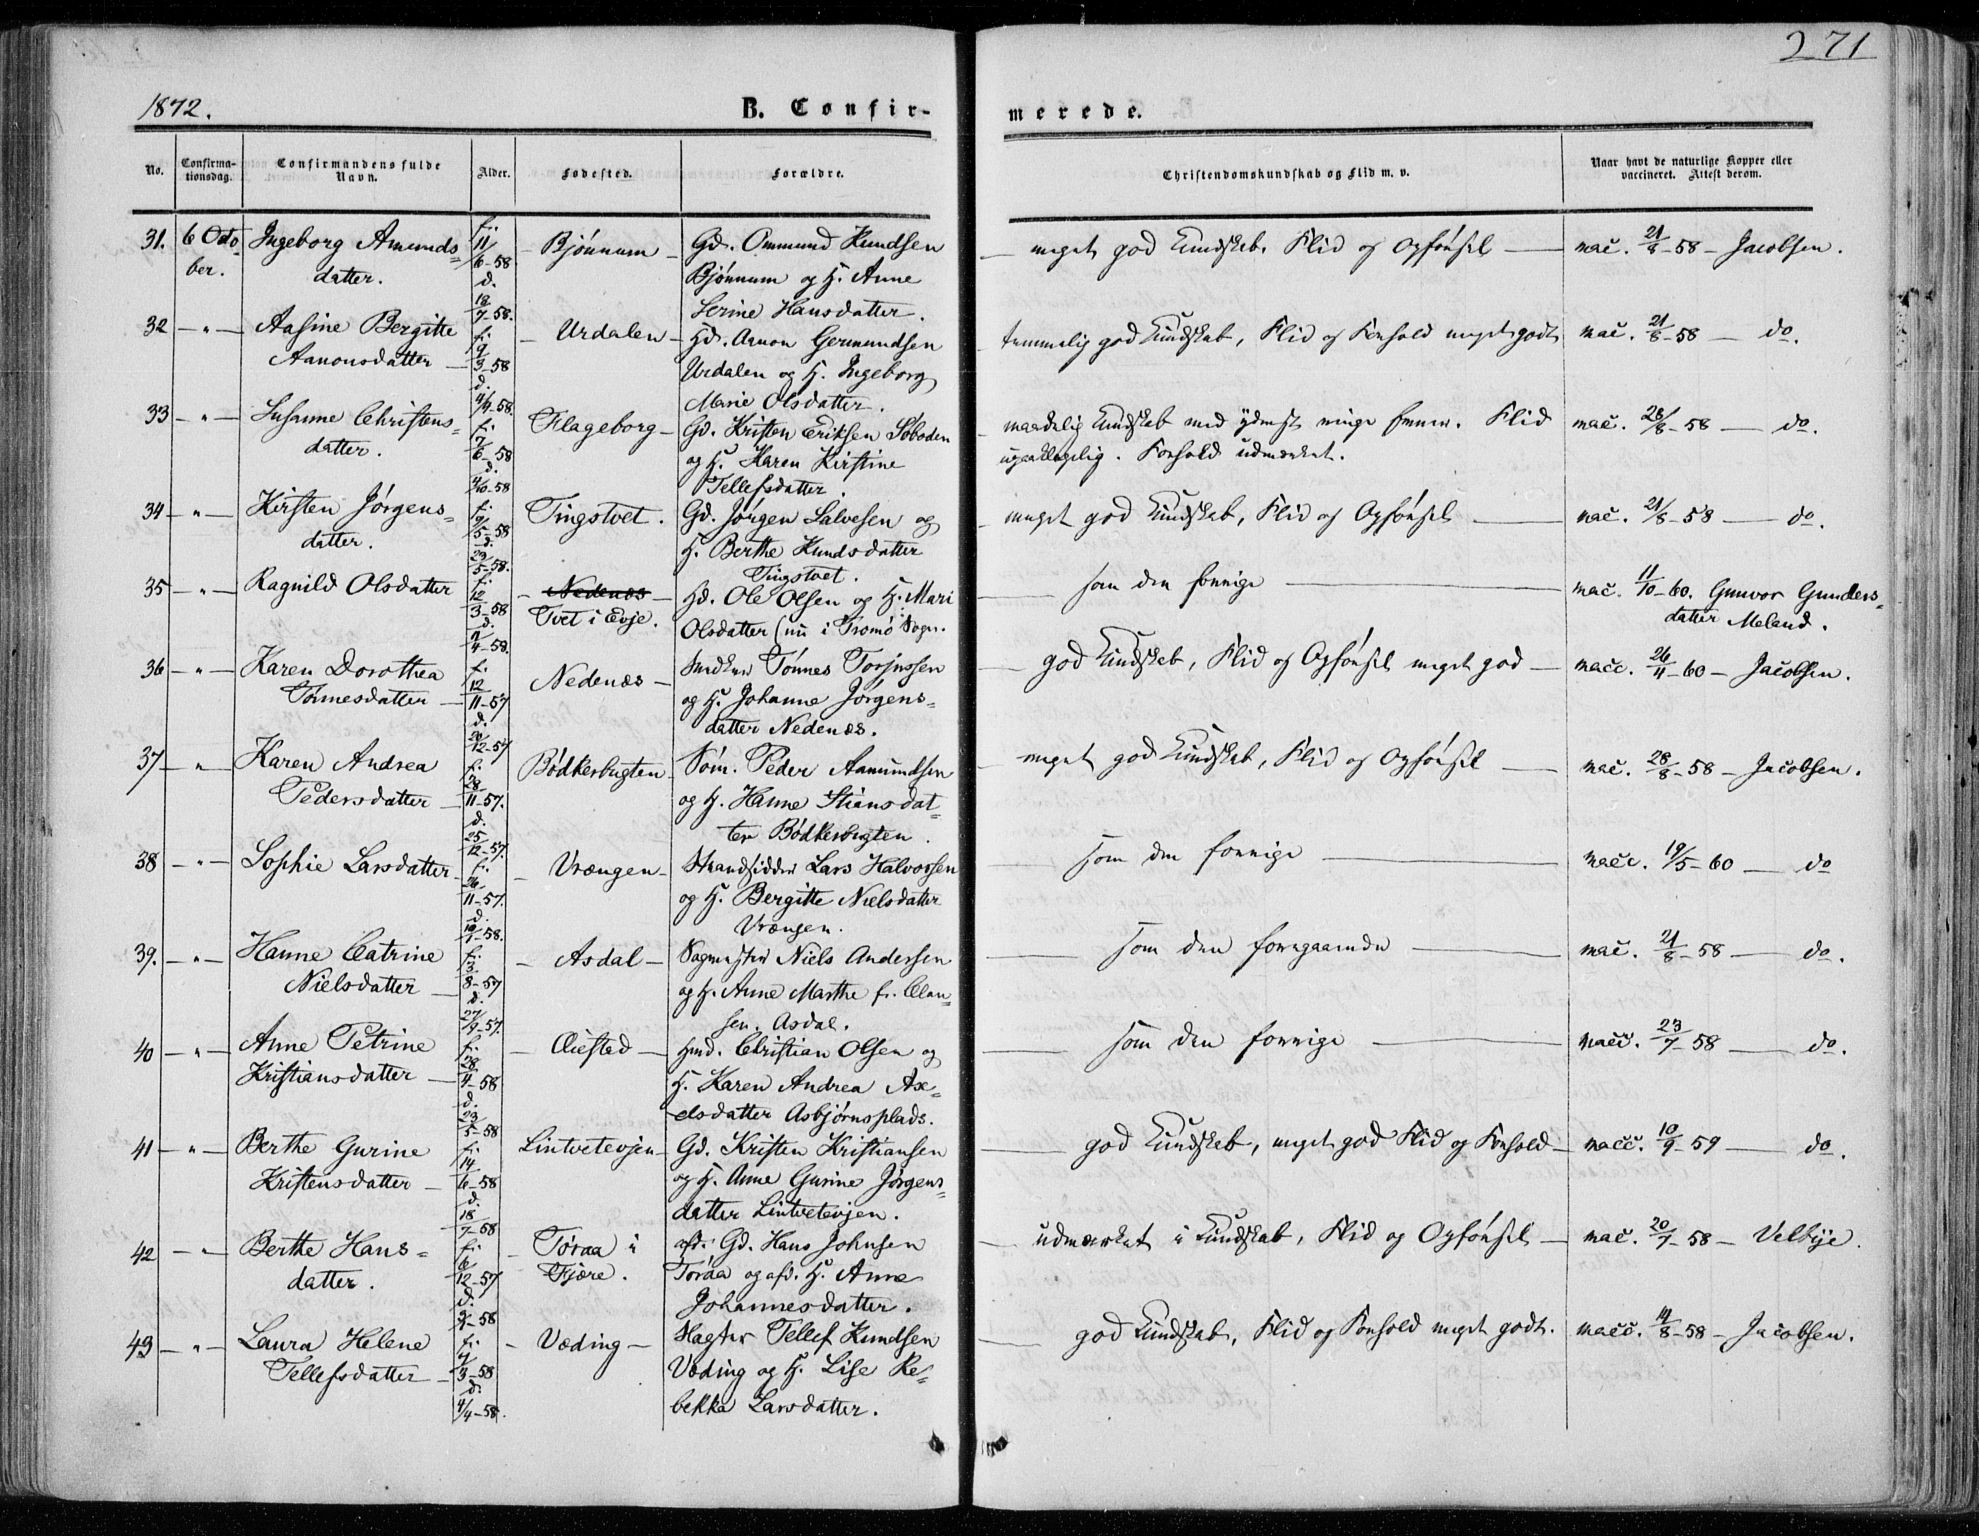 271
1872.
B. Confir-
merede.
No.
Confirma-
tionsdag.
Confirmandens fulde
Navn.
Alder.
Fødested.
Forældre.
Christendomskundskab og Flid m. v.
Naar havt de naturlige Kopper eller
vaccineret. Attest derom.
31. 6 Octo- Ingeborg Amunds= f. 11/6-58 - Bjönnum - Gd. Ommund Knudsen - meget god Kundskab. Flid og Opførsel - vac. 21/8-58 - Jacobsen.
ber. datter. d. 18/7-58. Bjönnum og H. Anne
Serine Hansdatter.
32 - " - Aasine Bergitte f. 9/3-58 - Urdalen - Hd. Aanon Germundsen - temmelig god Kundskab, Flid og Forhold meget godt vac. 21/8-58 - do.
Aanonsdatter - d. 4/4-58. Urdalen og H. Ingeborg
Marie Olsdatter.
33 - " - Susanne Christens= f. 17/6-58 Flageborg - Gd. Kristen Eriksen Søboden - maadelig Kundskab med ydmeft ringe Evner. Flid vac. 28/8-58 - do.
datter. d. 4/10-58 og H. Karen Kirstine upaaklagelig. Forhold udmærket.
Tellefsdatter.
34 - " - Kirsten Jörgens= f. 19/5-58 Tingstvet. Gd. Jørgen Salvesen og - meget god Kundskab, Flid og Opførsel - vac. 21/8-58 - do.
datter. d. 29/5-58. H. Berthe Knudsdatter
Tingstvet.
35 - " - Ragnild Olsdatter f. 12/3-58 - Nedenæs - Hd. Ole Olsen og H. Mari - som den forrige - vac. 11/10-60. Gunvor Gunders=
d. 2/4-58. Tvet i Evje. Olsdatter (nu i Tromø Sogn. datter Meland.
36 - " - Karen Dorothea f. 12/11-57 Nedenæs - Snedker Tönnes Torjussen - god Kundskab, Flid og Opførsel meget god - vacc. 26/11-60 - Jacobsen.
Tönnesdatter - d. 20/12-57 og H. Johanne Jørgens=
datter Nedenæs.
37 - " Karen Andrea f. 28/11-57. Bödkerbugten - Söm. Peder Aamundsen - meget god Kundskab, Flid og Opførsel - vac. 28/8-58 - Jacobsen.
Pedersdatter - d. 25/12-57. og H. Hanne Stiansdat
ter Bödkerbugten.
38 - " - Sophie Larsdatter f. 26/11-57. - Vrængen - Strandsidder Lars Halvorsen som den forrige - vacc. 19/5-60 - do
d. 10/1-58. og H. Bergitte Nielsdatter
Vrængen.
39. - " - Hanne Catrine f. 13/8-57 - Asdal - Sagmester Niels Andersen - som den foregaaende - vac. 21/8-58 - do.
Nielsdatter - d. 27/9-57. og H. Anne Marthe f. Clau=
sen. Asdal.
40 - " - Anne Petrine f. 28/4-58 - Øiestad - Hmd. Christian Olsen og - som den forrige - vacc. 23/7-58 - do.
Kristiansdatter - d. 23/5-58 H. Karen Andrea Ax-
elsdatter Asbjørnsplads.
41 - " - Berthe Gurine f. 14/6-58 Lintvetevjen - Gd. Kristen Kristiansen - god Kundskab, meget god Flid og Forhold - vacc. 10/9-59 - do.
Kristensdatter - d. 18/7-58 og H. Anne Gurine Jørgens=
datter Lintvetevjen.
42 - " Berthe Hans= f. 6/12-57 - Töraa i afd. Gd. Hans Johnsen - udmærket i Kundskab, Flid og Opførsel - vac. 20/7-58 - Velbye.
datter. d. 2/1-58 Fjære. Töraa og afd. H. Anne
Johannesdatter.
43 - " - Laura Helene f. 4/3-58 - Væding - Slagter Tellef Knudsen - god Kundskab, Flid og Forhold meget godt. vacc. 14/8-58 - Jacobsen.
Tellefsdatter - d. 4/4-58. Væding og H. Lise Re=
bekka Larsdatter.